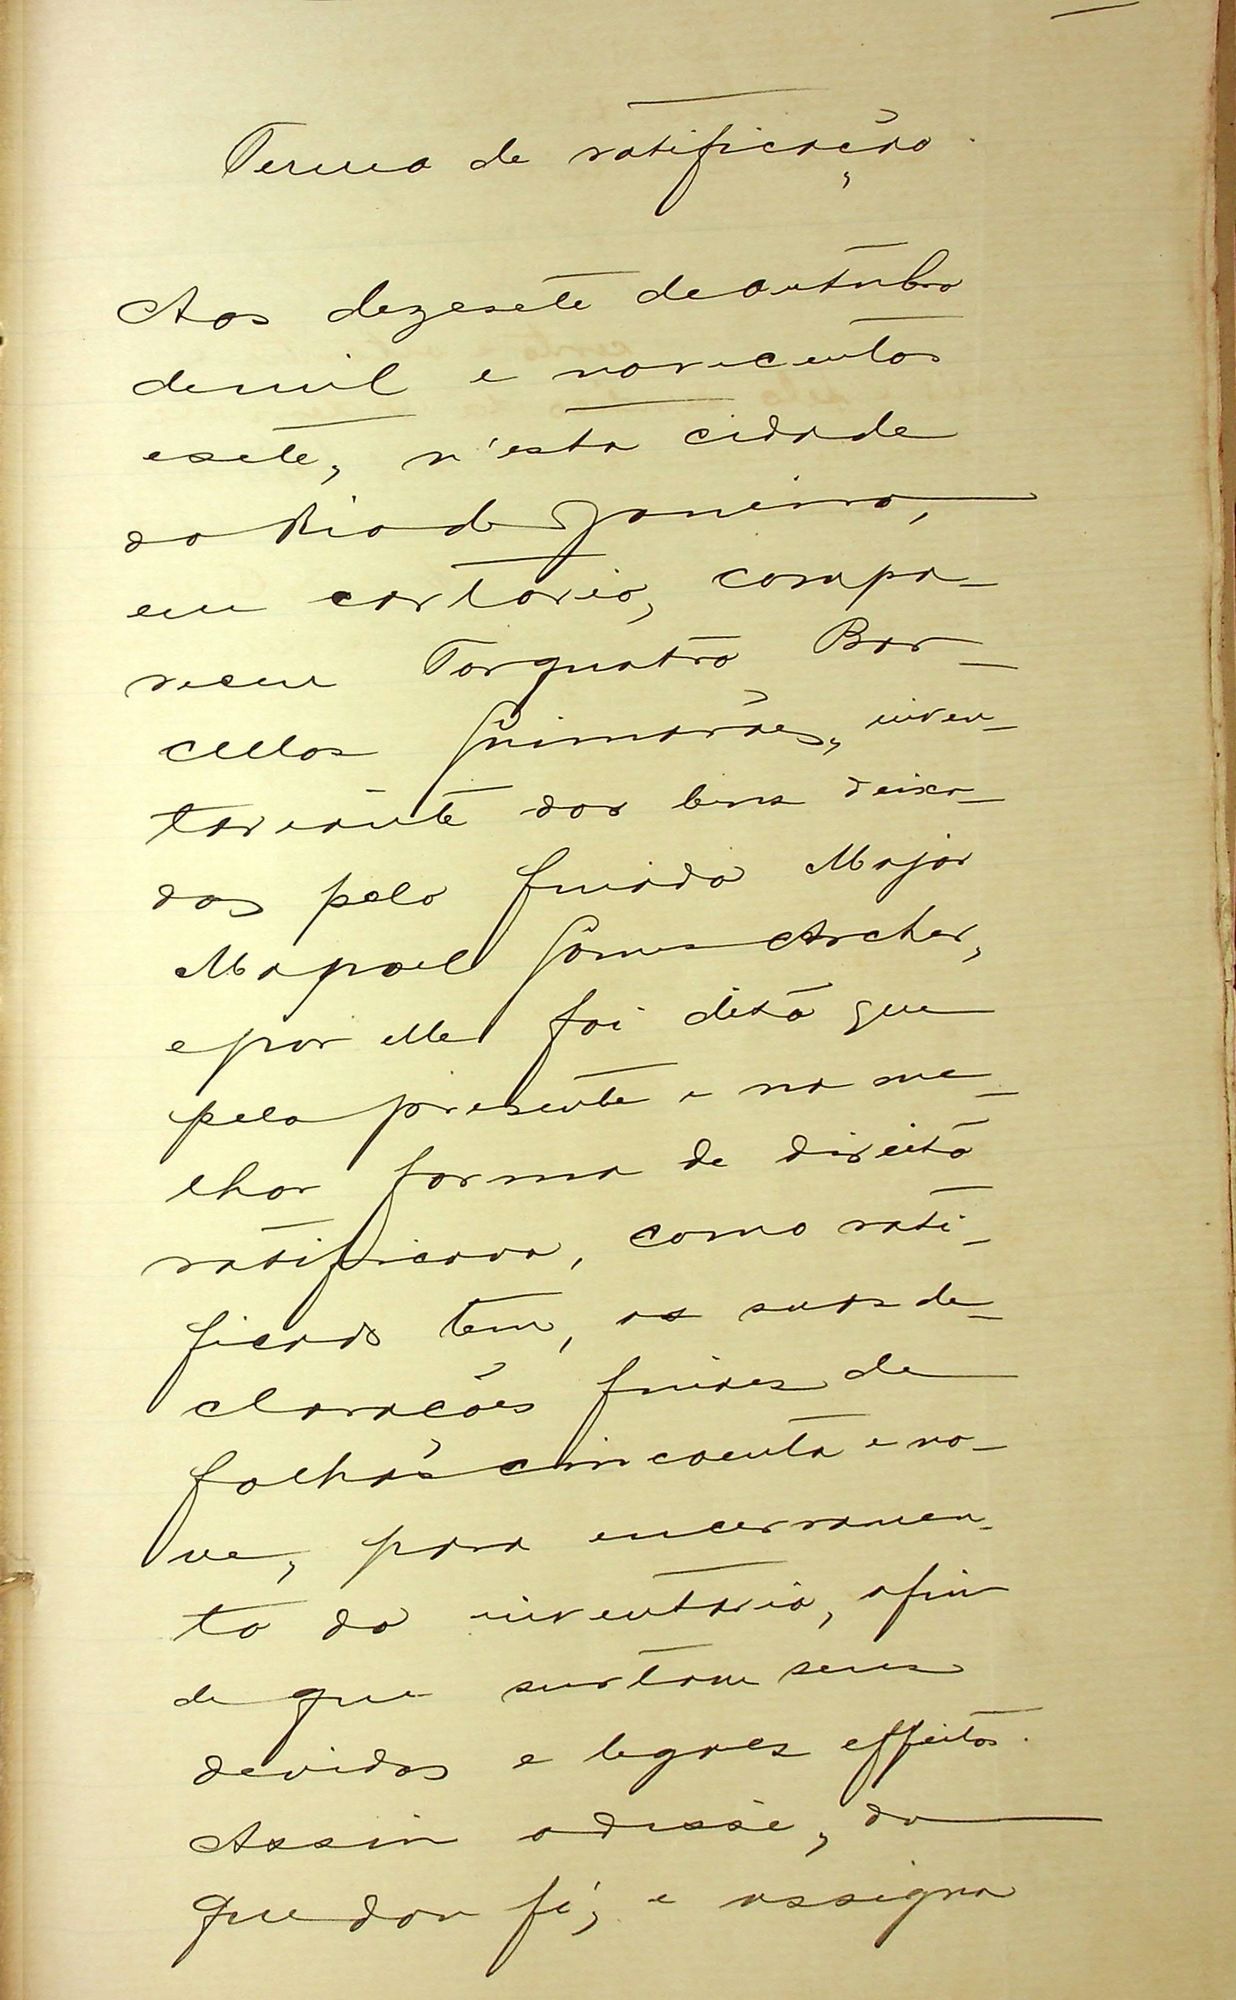 Termo de ratificação.
Aos dezesete de outubro
de mil e novecentos
e sete, n'esta cidade
do Rio de Janeiro,
em cartorio, compa-
receu Torquatro Bar-
cellos Guimarães, inven-
tariante dos bens deixa-
dos pelo finado Major
Manoel Gomes Archer,
e por elle foi dito que
pelo presente e na me-
lhor forma de direito
ratificava, como rati-
ficado tem, as suas de-
clarações finaes de
folhas cincoenta e no-
ve, para encerramen-
to do inventario, afim
de que surtam seus
devidos e legaes effeitos.
Assim o disse, do
que dou fé, e assigna